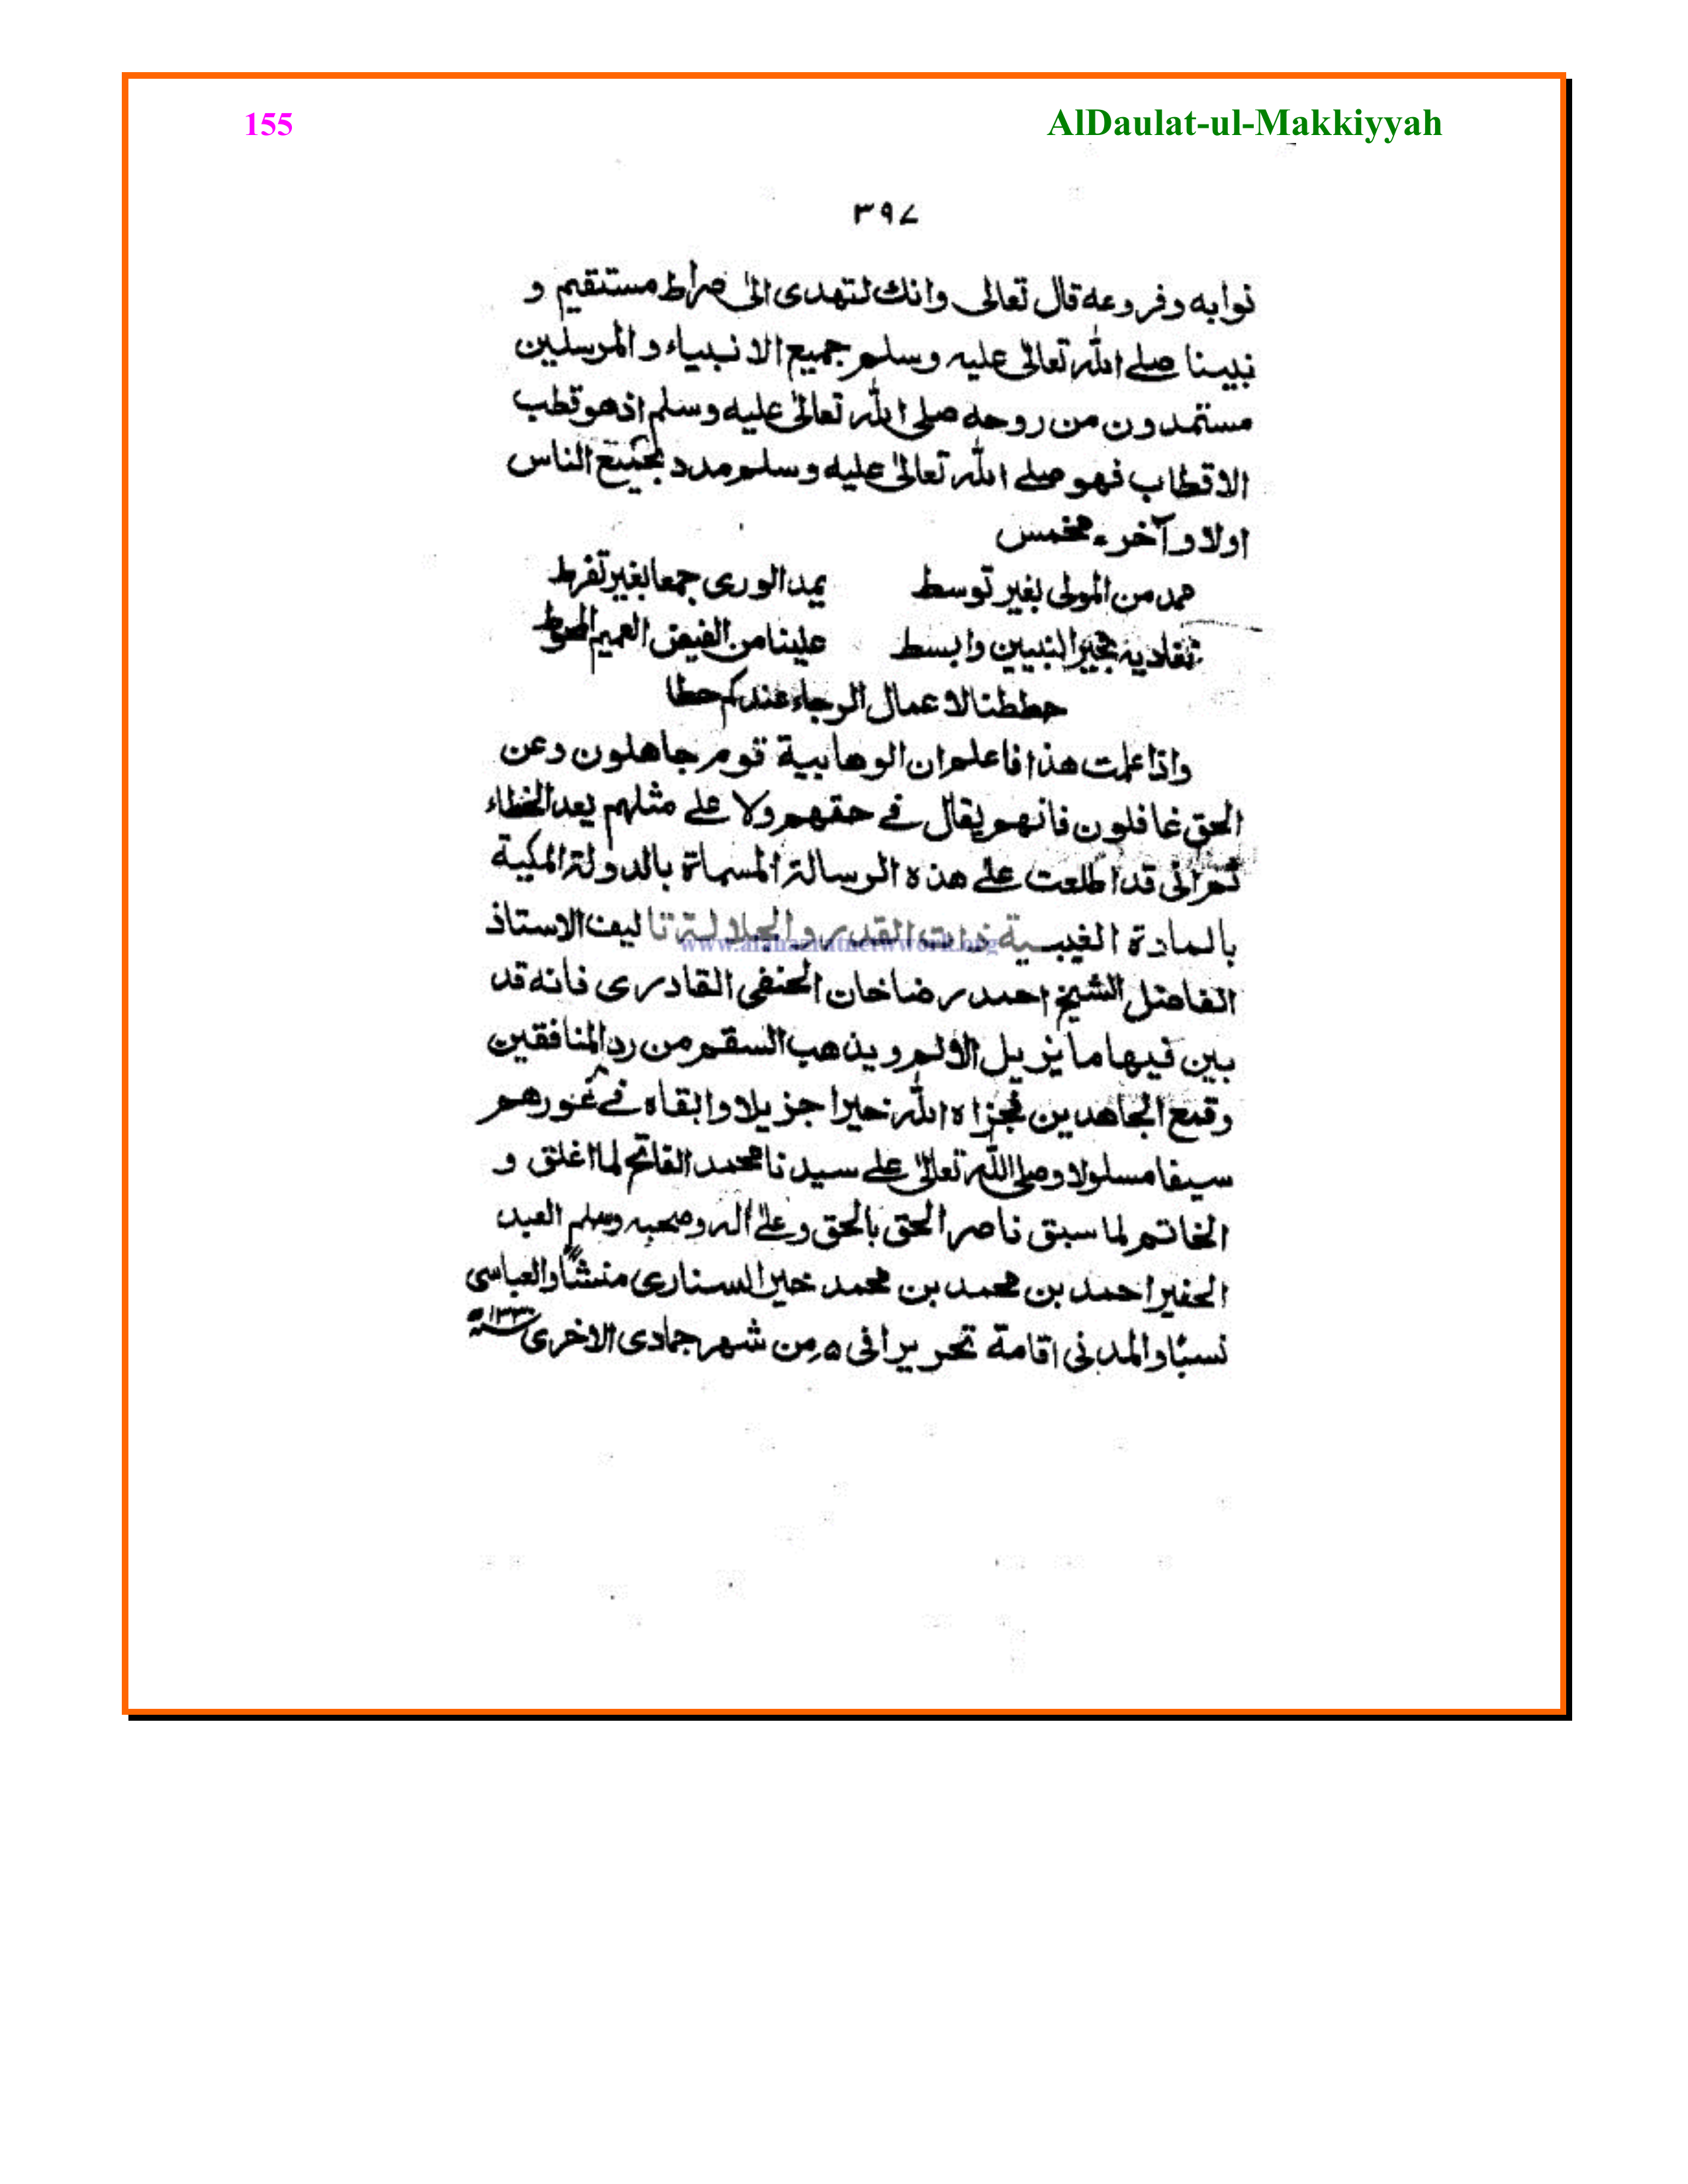 155 AlDaulat-ul-Makkiyyah
۳۹۷
نوابه وفروعه قال تعالى وانك لتهدى الىٰ صراط مستقيم و
نبينا صلے اللہ تعالىٰ عليه وسلم جميع الانبياء والمرسلين
مستمدون من روحه صلى اللہ تعالىٰ عليه وسلم اذ هو قطب
الاقطاب فهو صلے اللہ تعالىٰ عليه وسلم مدد لجميع الناس
اولا وآخر۔ مخمس
ممد من المولى بغير توسط يمد الورى جمعا بغير تفرط
بخير النبيين وابسط علينا من الفيض العميم
حططنا لاعمال الرجاء عندكم حطا
واذا علمت هذا فاعلم ان الوهابية قوم جاهلون وعن
الحق غافلون فانهم يقال فے حقهم ولا علے مثلهم يعد الخطاء
ثم انى قد اطلعت علے هذه الرسالة المسماة بالدولة المكية
بالمادة الغيبية ذات القدر والجلالة تاليف الاستاذ
www.alahazratnetwork.org
الفاضل الشيخ احمد رضا خان الحنفى القادرى فانه قد
بين فيها ما يزيل الالم ويذهب السقم من رد المنافقين
وقمع الجاهدين فجزاه اللہ خيرا جزيلا وابقاه فے نحورهم
سيفا مسلولا وصلى اللہ تعالىٰ علے سيدنا محمد الفاتح لما اغلق و
الخاتم لما سبق ناصر الحق بالحق وعلےٰ اله وصحبه وسلم العبد
الحقير احمد بن محمد بن محمد خير السنارى منشأ والعباسى
نسبًا والمدنى اقامة تحريرا فى ۵ من شهر جمادى الاخرى ۱۳۳۰ه